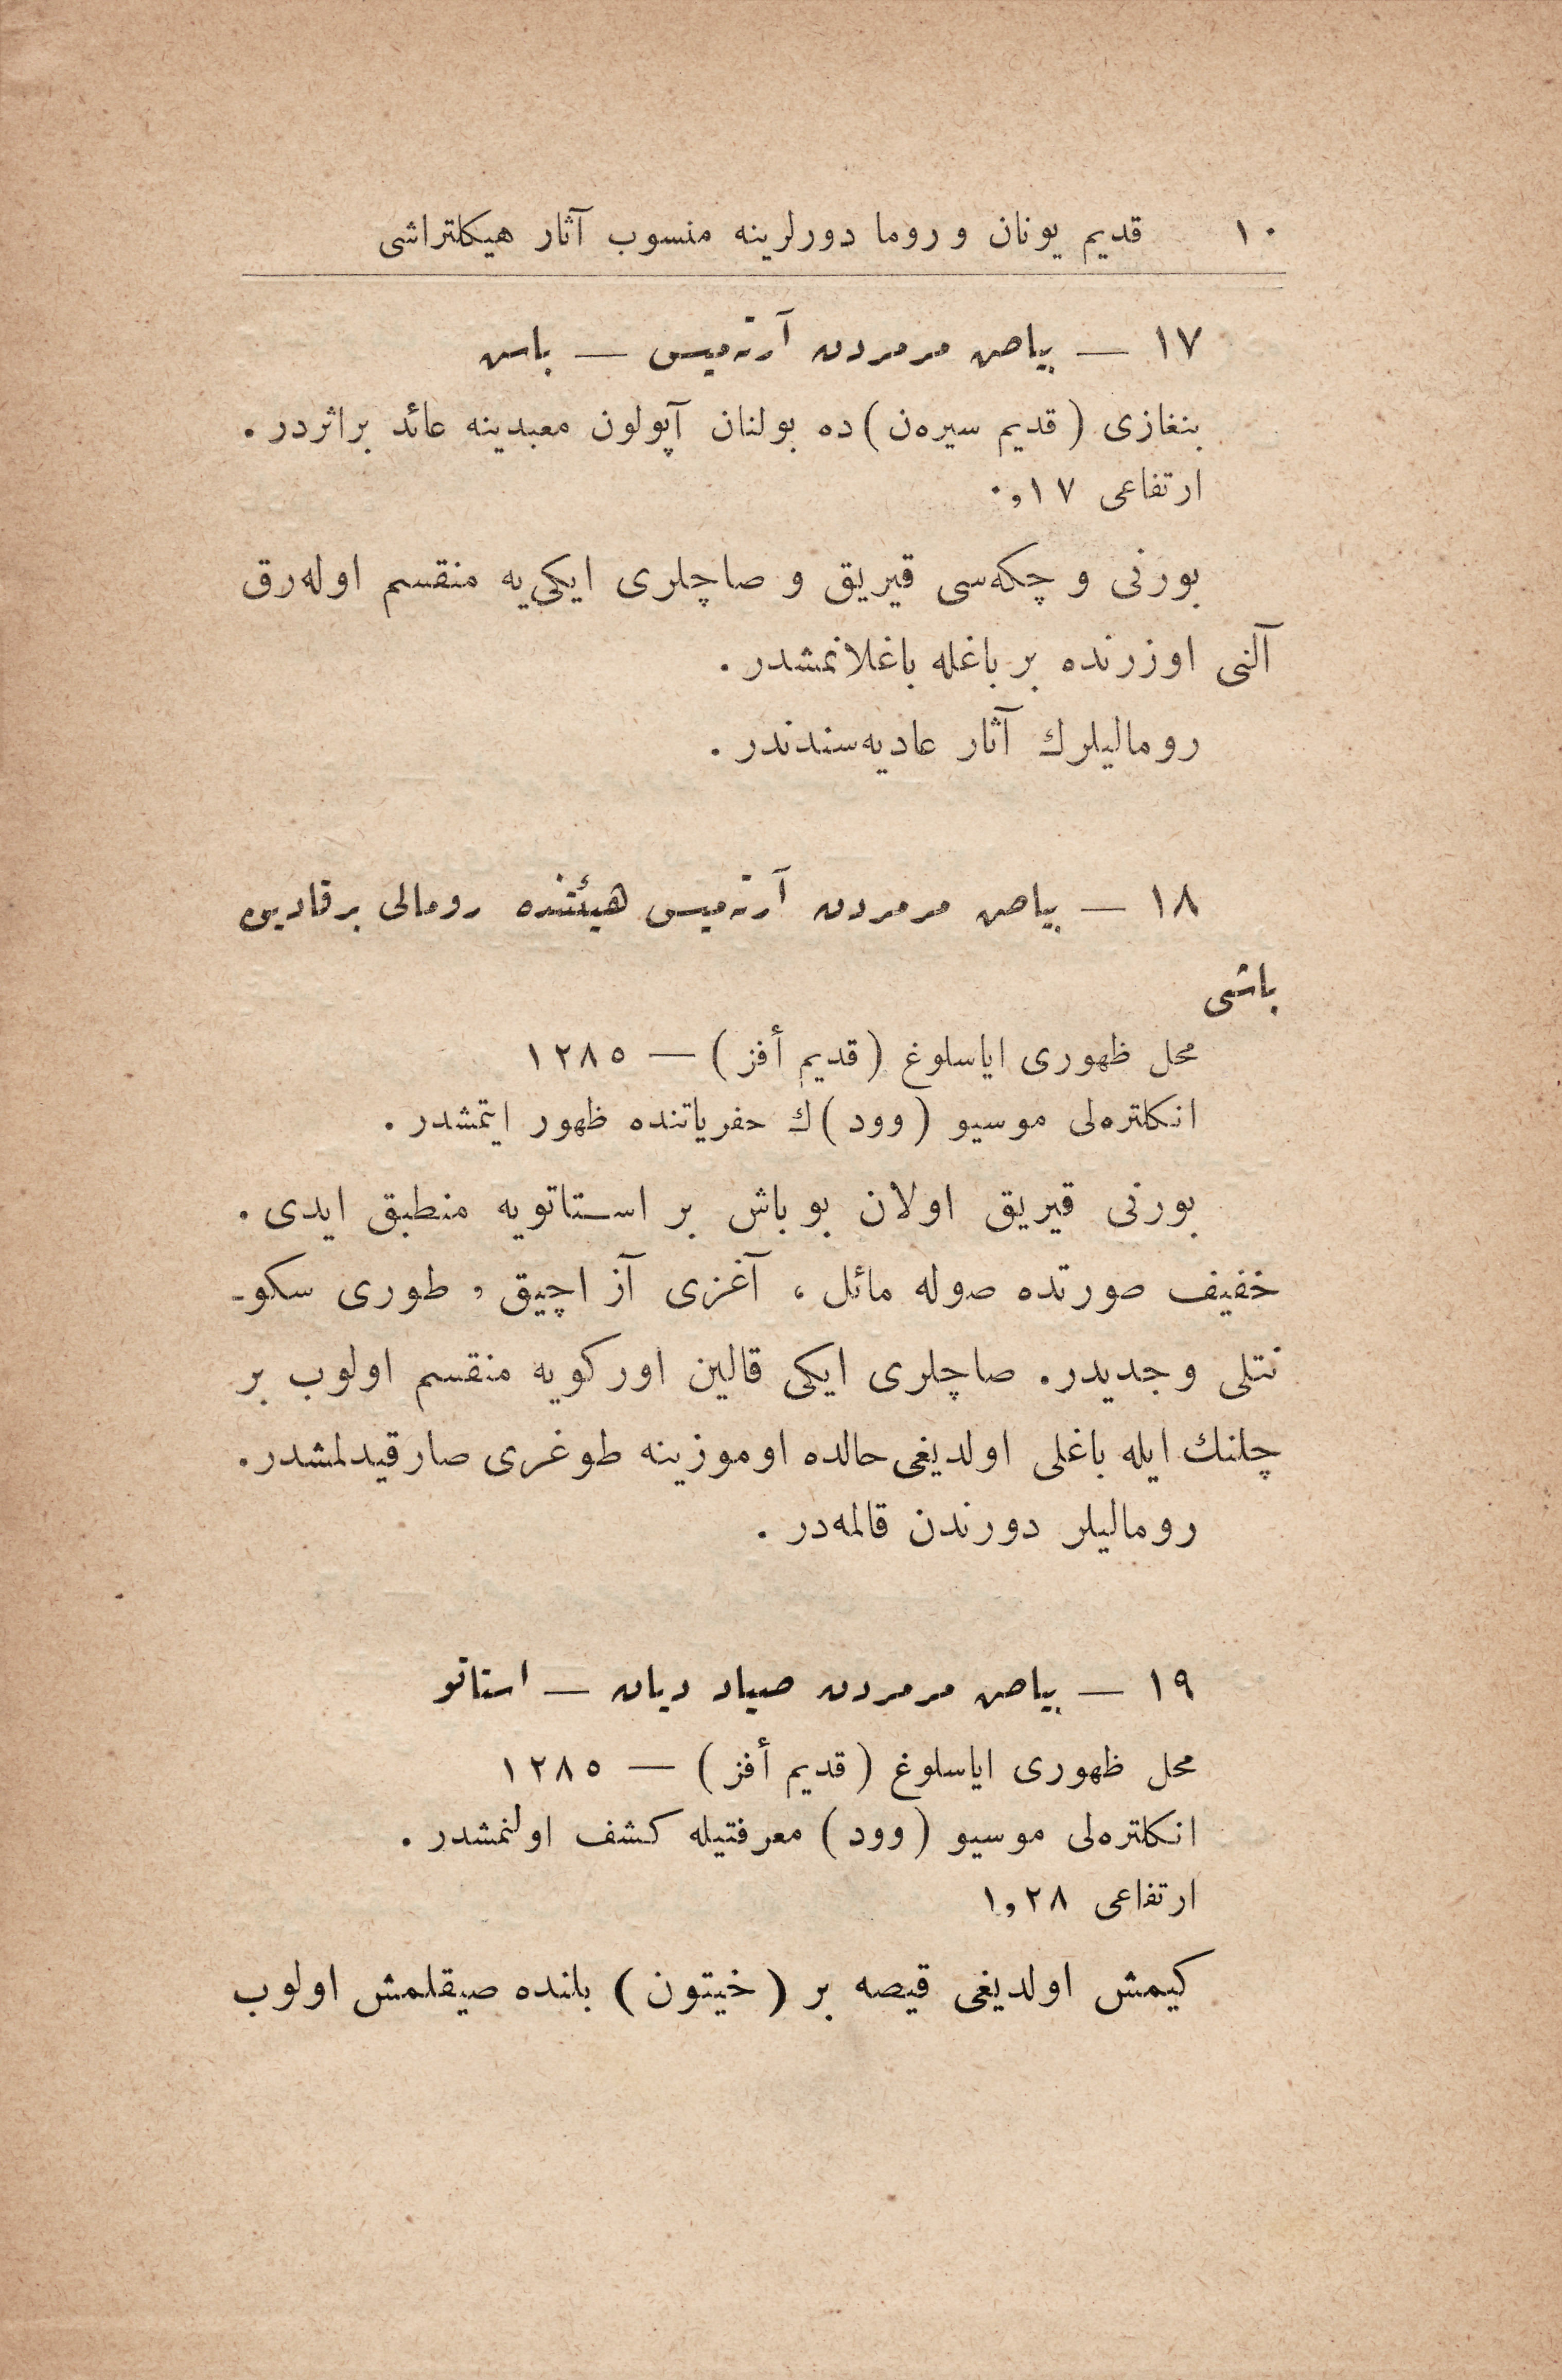 ١٠ قديم يونان و روما دورلرينه منسوب آثار هيكلتراشى
١٧ — بياض مرمردن آرته‌ميس — باش
بنغازى (قديم سيره‌ن) ده بولنان آپولون معبدينه عائد بر اثردر .
ارتفاعى ٠,١٧
بورنى و چكه‌سى قيريق و صاچلرى ايكى‌يه منقسم اوله‌رق
آلنى اوزرنده بر باغله باغلانمشدر .
روماليلرك آثار عاديه‌سندندر .
١٨ — بياض مرمردن آرته‌ميس هيئتنده رومالى بر قادين
باشى
محل ظهورى اياسلوغ (قديم أفز) — ١٢٨٥
انكلتره‌لى موسيو (وود) ك حفرياتنده ظهور ايتمشدر .
بورنى قيريق اولان بو باش بر استاتويه منطبق ايدى .
خفيف صورتده صوله مائل ، آغزى آز اچيق ، طورى سكو-
نتلى و جديدر . صاچلرى ايكى قالين اوركويه منقسم اولوب بر
چلنك ايله باغلى اولديغى حالده اوموزينه طوغرى صارقيدلمشدر .
روماليلر دورندن قالمه‌در .
١٩ — بياض مرمردن صياد ديان — استاتو
محل ظهورى اياسلوغ (قديم أفز) — ١٢٨٥
انكلتره‌لى موسيو (وود) معرفتيله كشف اولنمشدر .
ارتفاعى ١,٢٨
كيمش اولديغى قيصه بر (خيتون) بلنده صيقلمش اولوب